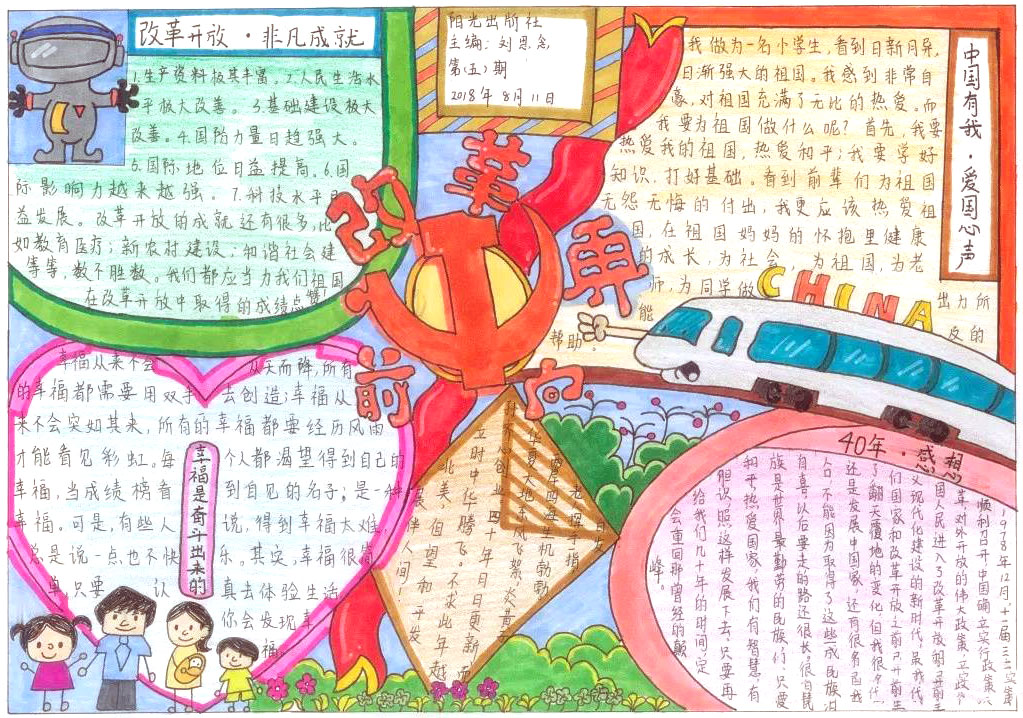 改革开放·非凡成就
1.生产资料极其丰富,2.人民生活水
平极大改善。3.基础建设极大
改善。4.国防力量日趋强大。
5.国际地位日益提高。6.国
际影响力越来越强。7.科技水平日
益发展。改革开放的成就还有很多,比
如教育医疗;新农村建设;和谐社会建
等等,数不胜数。我们都应当力我们祖国
在改革开放中取得的成绩点赞!
阳光出版社
主编:刘思念
第(五)期
2018年8月11日
中国有我·爱国心声
我做为一名小学生,看到日新月异,
日渐强大的祖国。我感到非常自
豪,对祖国充满了无比的热爱。而
我要为祖国做什么呢?首先,我要
热爱我的祖国,热爱和平;我要学好
知识,打好基础。看到前辈们为祖国
无怨无悔的付出,我更应该热爱祖
国,在祖国妈妈的怀抱里健康
的成长,为社会,为祖国,为老
师,为同学做出力所
能及的
帮助。
CHINA
改革再
前向
幸福从来不会从天而降,所有
的幸福都需要用双手去创造;幸福从
来不会突如其来,所有的幸福都要经历风雨
才能看见彩虹。每个人都渴望得到自己的
幸福,当成绩榜看到自见的名子;是一种
幸福。可是,有些人说,得到幸福太难,
总是说一点也不快乐。其实,幸福很简
单,只要认真去体验生活,
你会发现幸
福。
幸福是奋斗出来的
立时中华腾飞。不求此年越
北美,但望和平发
展伴人间!
40年·感想
1978年12月
顺利召开中国确立实行政策
革对外开放的伟大政策,
国人民进入了改革开放
义现代化建设的新时代,虽我代
们国家和改革开放之前
了翻天覆地的变化,但我
还是发展中国家,还有很多
人口,不能因为取得了这些成
自喜,以后要走的路还很长很
族是世界最勤劳的民族,们只要
和平热爱国家,我们有智慧,有
胆识,照这样发展下去,只要再
给我们几十年的时间,定
会重回那曾经的巅
峰。